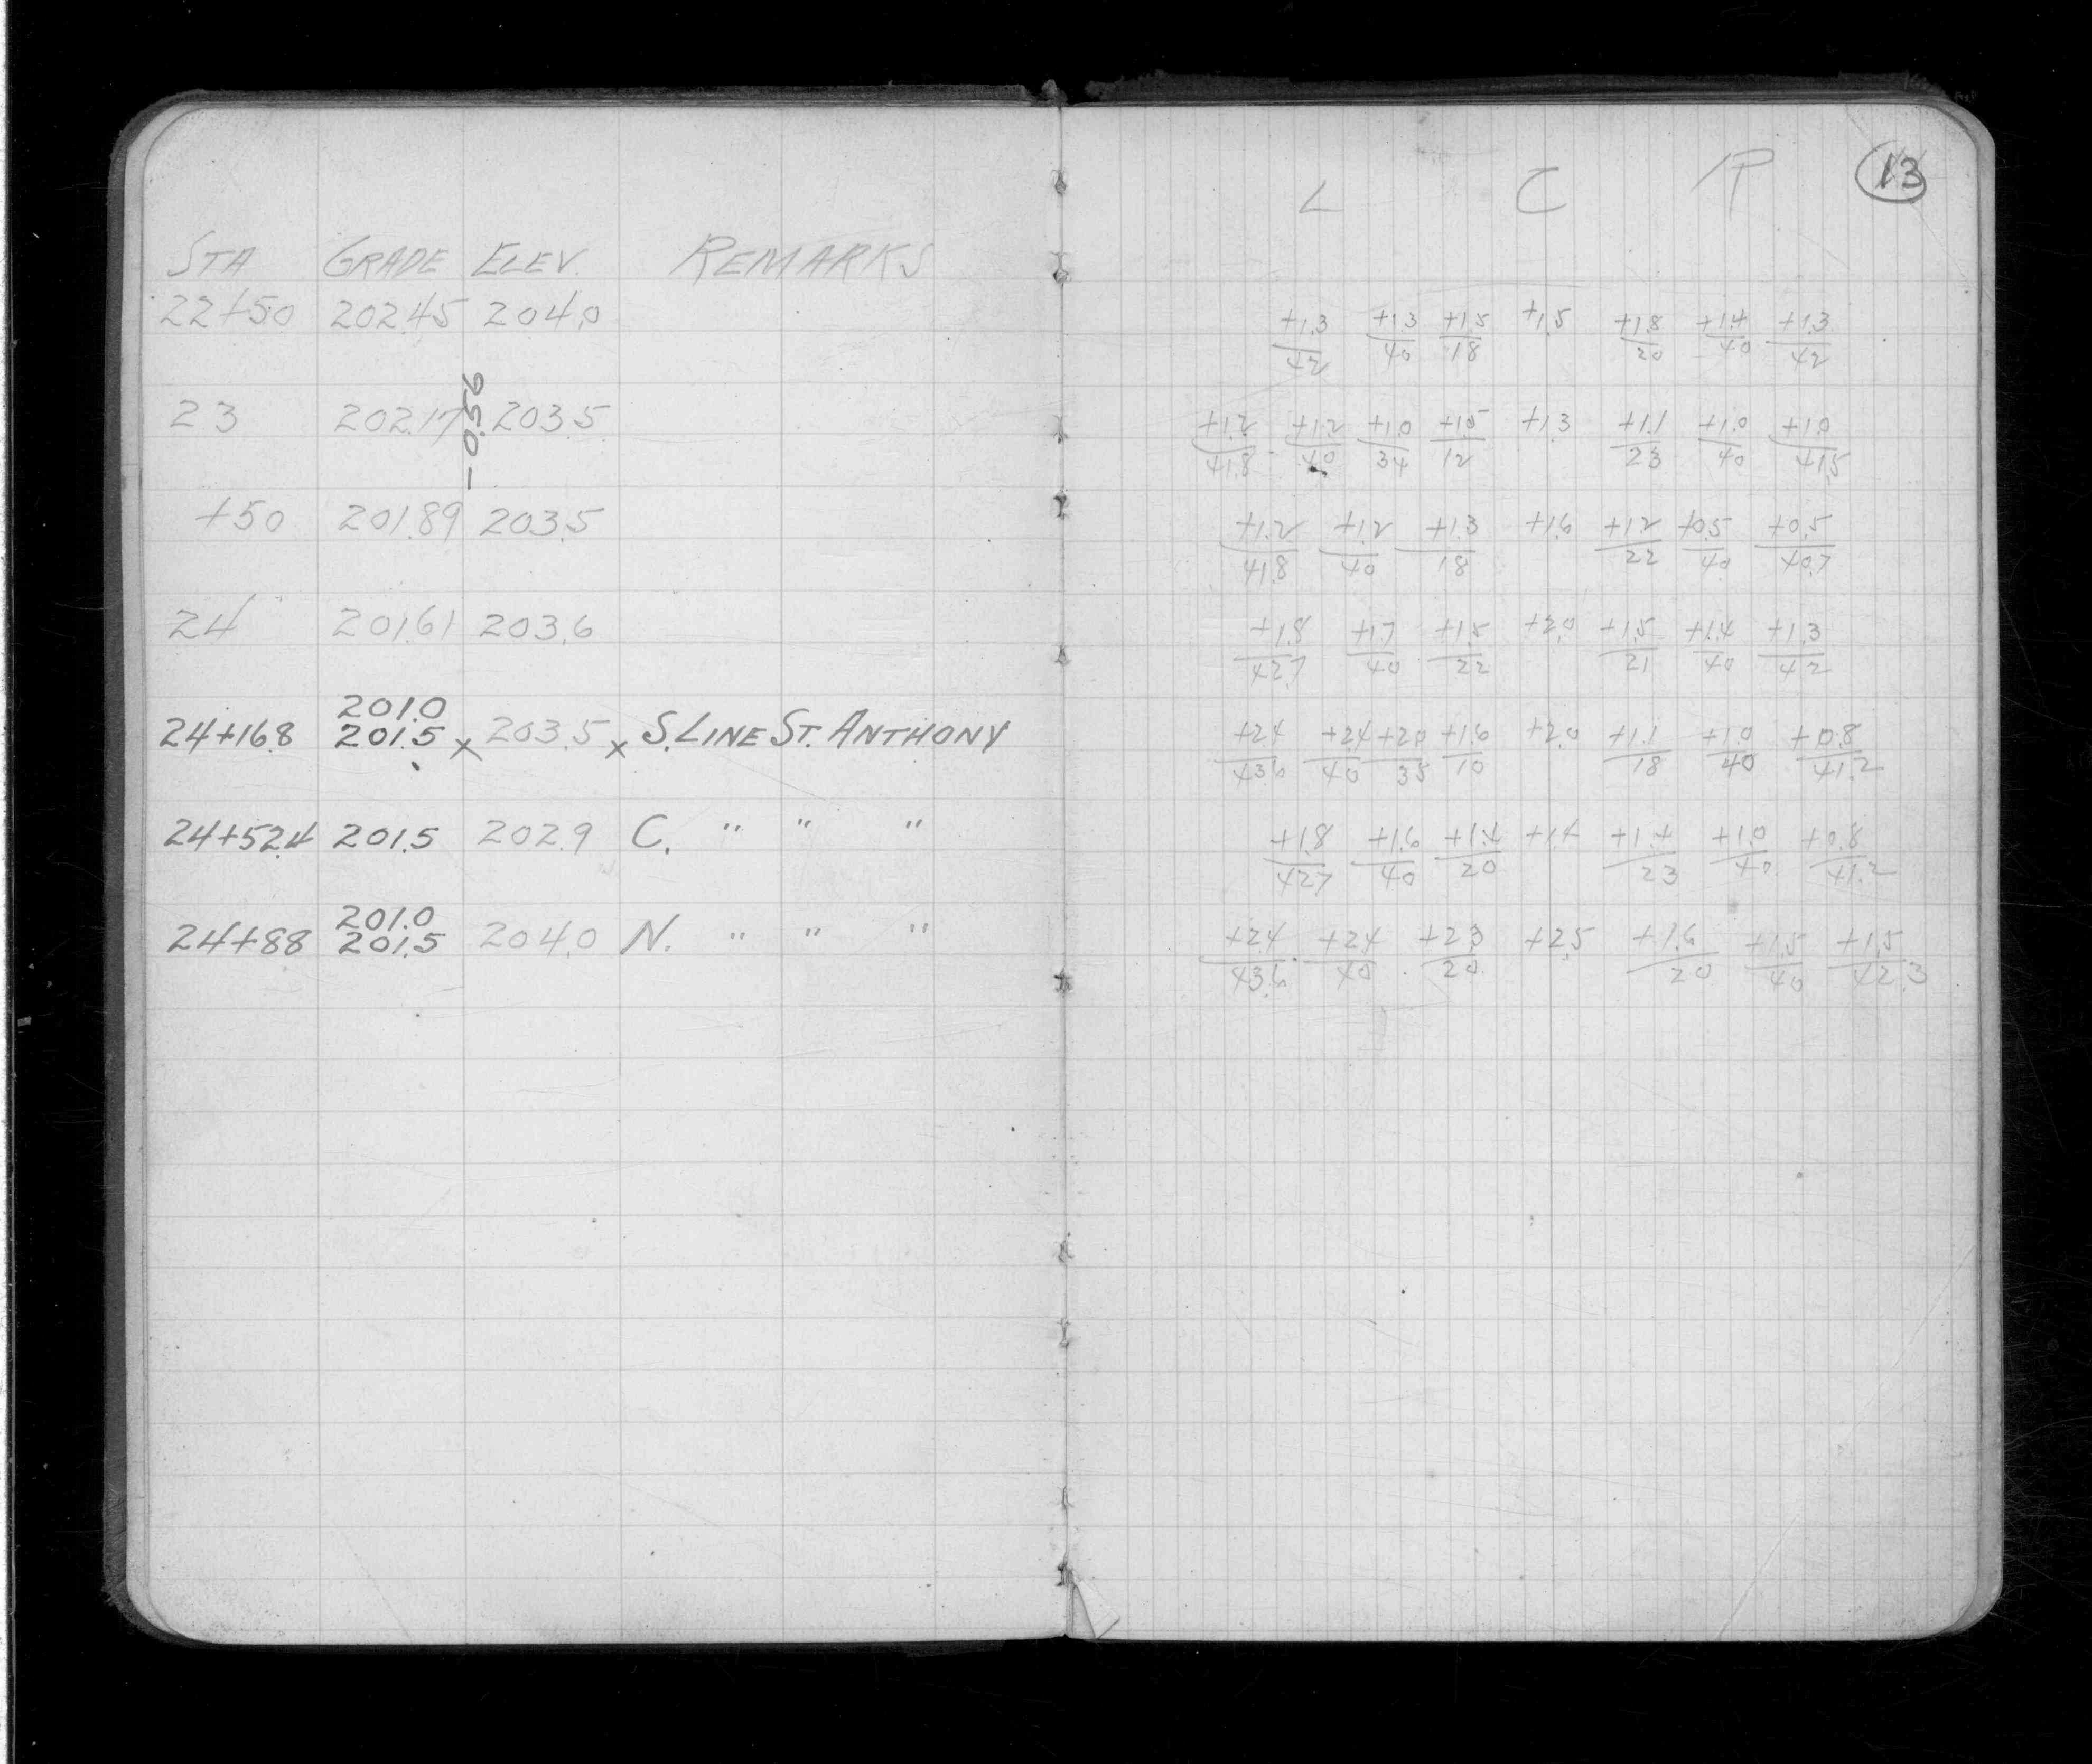 STA GRADE ELEV. REMARKS
22+50 202.45 204.0
23 202.17 203.5
-0.56
+50 201.89 203.5
24 201.61 203.6
201.0
24+16.8 201.5 x 203.5 x S. LINE ST. ANTHONY
24+52.4 201.5 202.9 C. " " "
201.0
24+88 201.5 204.0 N. " " "
13
L C R
+1.3 +1.3 +1.5 +1.5 +1.8 +1.4 +1.3
42 40 18 20 40 42
+1.2 +1.2 +1.0 +1.5 +1.3 +1.1 +1.0 +1.0
41.8 40 34 12 23 40 41.5
+1.2 +1.2 +1.3 +1.6 +1.2 +0.5 +0.5
41.8 40 18 22 40 40.7
+1.8 +1.7 +1.5 +2.0 +1.5 +1.4 +1.3
42.7 40 22 21 40 42
+2.4 +2.4 +2.0 +1.6 +2.0 +1.1 +1.0 +0.8
43.6 40 35 10 18 40 41.2
+1.8 +1.6 +1.4 +1.4 +1.4 +1.0 +0.8
42.7 40 20 23 40 41.2
+2.4 +2.4 +2.3 +2.5 +1.6 +1.5 +1.5
43.6 40 20 20 40 42.3